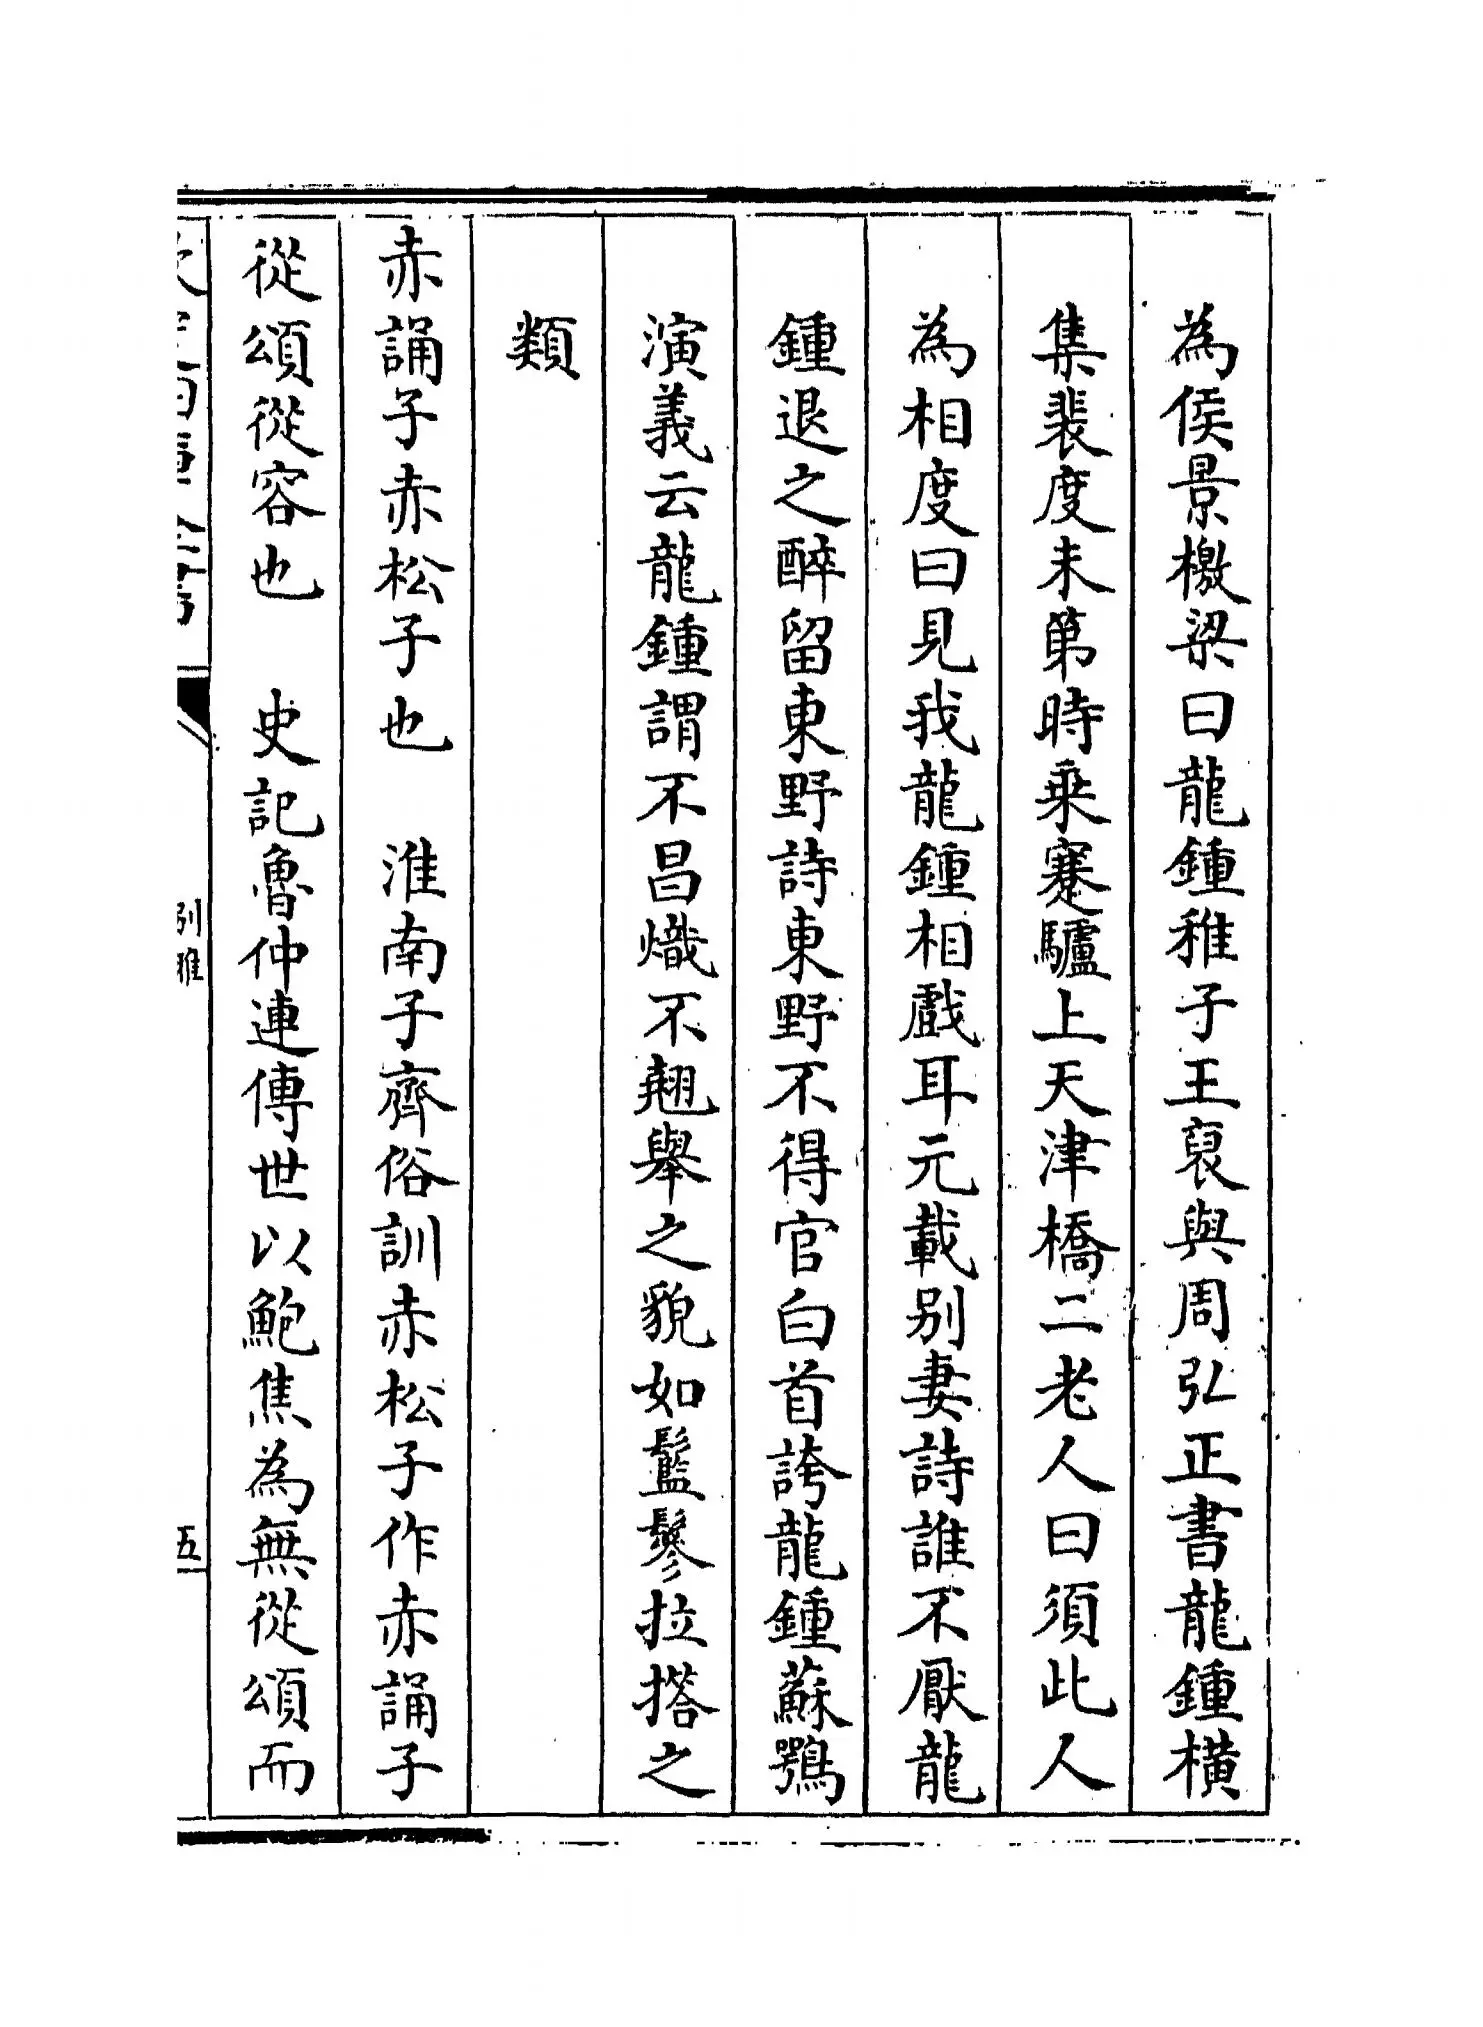 為侯景檄梁曰龍鍾稚子王裒與周弘正書龍鍾橫
集裴度未第時乗蹇驢上天津橋二老人曰須此人
為相度曰見我龍鍾相戲耳元載别妻詩誰不厭龍
鍾退之醉留東野詩東野不得官白首誇龍鍾蘇鶚
演義云龍鍾謂不昌熾不翹舉之貌如鬛鬖拉搭之
類
赤誦子赤松子也　淮南子齊俗訓赤松子作赤誦子
從頌從容也　史記魯仲連傳世以鮑焦為無從頌而
别雅
五